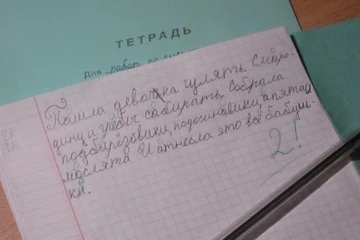 ТЕТРАДЬ
для работ по
Пошла девочка гулять. Сморо-
дину и грибы сабирать. Собрала
подбирёзовики, подосинавики, апята,
маслята. И атнесла это всё бабуш-
ки.
2!